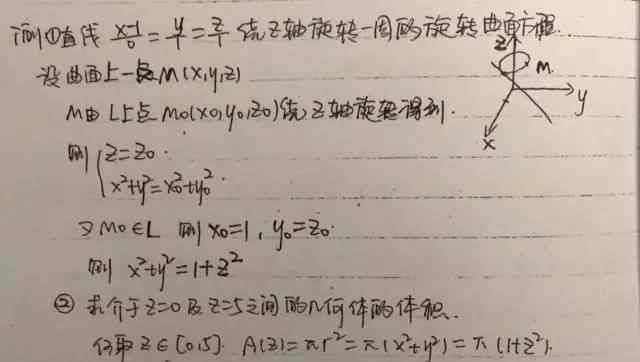 例①直线 (x-1)/0 = y/1 = z/1 绕Z轴旋转一周的旋转曲面方程.
设曲面上一点M(x,y,z)
M由L上点M₀(x₀,y₀,z₀)绕Z轴旋转得到.
则 { z=z₀.
x²+y²=x₀²+y₀².
又M₀∈L 则 x₀=1, y₀=z₀.
则 x²+y²=1+z²
② 求介于z=0及z=5之间的几何体的体积.
任取z∈[0,5]. A(z)=πr²=π(x²+y²)=π(1+z²).
z
M.
y
x